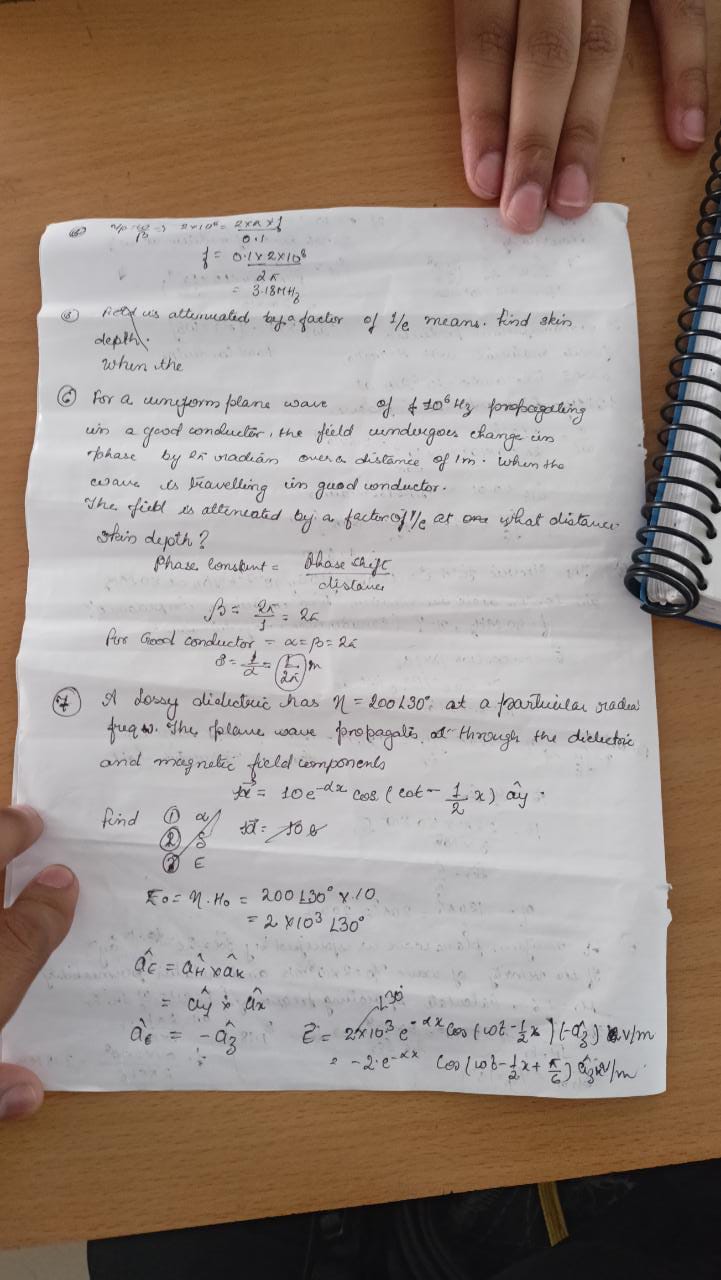 β ⇒ 2×10⁸ = 2×π×f / 0.1
f = 0.1×2×10⁸ / 2π
= 3.18MHz
⑤ Field is attenuated by a factor of 1/e means. find skin
depth.
When the
⑥ For a uniform plane wave of f 10⁶ Hz propagating
in a good conductor, the field undergoes change in
phase by 2π radian over a distance of 1m. When the
wave is travelling in good conductor.
The field is attenuated by a factor of 1/e at one what distance
skin depth?
Phase Constant = Phase shift / distance
β = 2π/1 = 2π
for Good conductor = α = β = 2π
δ = 1/α = 1/2π m
⑦ A Lossy dielectric has η = 200∠30° at a particular radia
freqw. The plane wave propagates through the dielectric
and magnetic field components
= 10e^-αx cos (ωt - 1/2 x) ây.
find ① α
② δ
③ E
E₀ = η.H₀ = 200∠30° × 10
= 2×10³ ∠30°
âE = âH × âK
= ây × âx
âE = -âz
∠30°
E = 2×10³ e^-αx cos (ωt - 1/2 x) (-âz) v/m
= -2.e^-αx cos (ωt - 1/2 x + π/6) âz kv/m